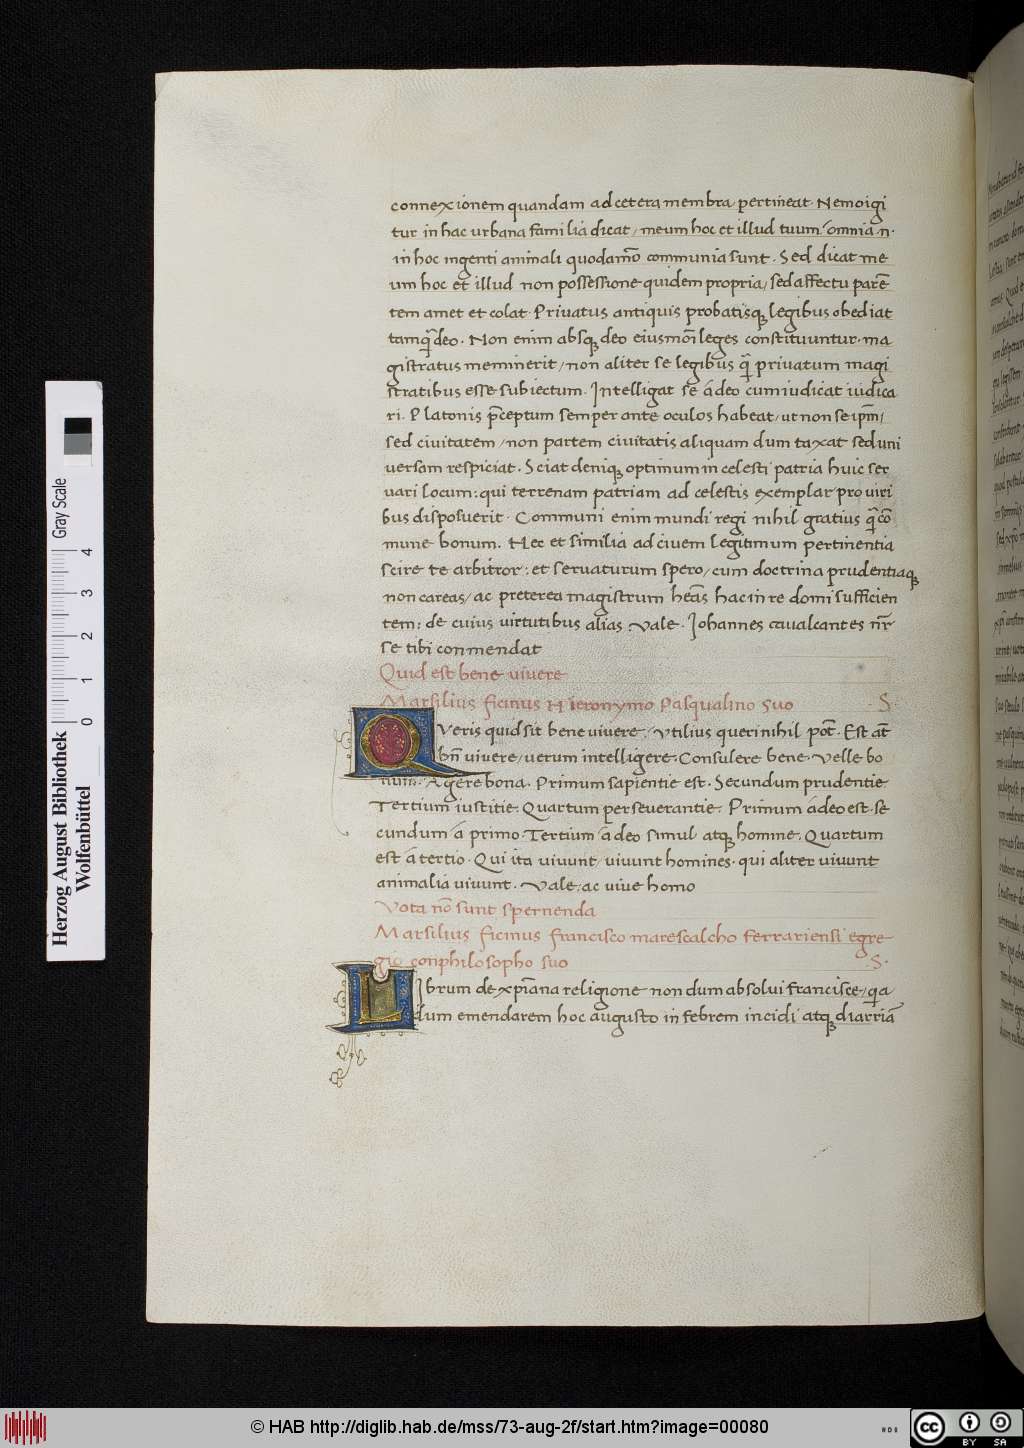 connexionem quandam ad cetera membra pertineat. Nemo igi
tur in hac urbana familia dicat / meum hoc et illud tuum / omnia .n.
in hoc ingenti animali quodam̄o communia sunt. Sed dicat me
um hoc et illud non possessione quidem propria / sed affectu parē
tem amet et colat. Privatus antiquis probatisqꝫ legibus obediat
tamq̄ deo. Non enim absqꝫ deo eiusmōi leges constituuntur. ma
gistratus meminerit / non aliter se legibus q̄ privatum magi
stratibus esse subiectum. Intelligat se a deo cum iudicat iudica
ri. Platonis p̄ceptum semper ante oculos habeat / ut non se ip̄m /
sed civitatem / non partem civitatis aliquam dum taxat sed uni
versam respiciat. Sciat deniqꝫ optimum in celesti patria huic ser
vari locum: qui terrenam patriam ad celestis exemplar pro viri
bus disposuerit. Communi enim mundi regi nihil gratius q̄ cō
mune bonum. Nec et similia ad civem legitimum pertinentia
scire te arbitror: et servaturum spero / cum doctrina prudentiaqꝫ
non careas / ac preterea magistrum hēas hac in re domi sufficien
tem: de cuius virtutibus alias. Vale. Johannes cavalcantes nr̄
se tibi conmendat
Quid est bene vivere
Marsilius ficinus Hieronymo Pasqualino suo .S.
Queris quid sit bene vivere. Utilius queri nihil pōt. Est at̄
bn̄ vivere / verum intelligere. Consulere bene. Velle bo
num. Agere bona. Primum sapientie est. Secundum prudentie
Tertium iustitie. Quartum perseverantie. Primum a deo est. se
cundum a primo. Tertium a deo simul atqꝫ homine. Quartum
est a tertio. Qui ita vivunt / vivunt homines. qui aliter vivunt
animalia vivunt. Vale / ac vive homo
Vota nō sunt spernenda
Marsilius ficinus francisco marescalcho ferrariensi egre
gio conphilosopho suo .S.
Librum de xp̄iana religione non dum absolvi francisce / q̄a
dum emendarem hoc augusto in febrem incidi atqꝫ diarriā
Herzog August Bibliothek
Wolfenbüttel
0 1 2 3 4
Gray Scale
© HAB http://diglib.hab.de/mss/73-aug-2f/start.htm?image=00080
HAB
cc BY SA